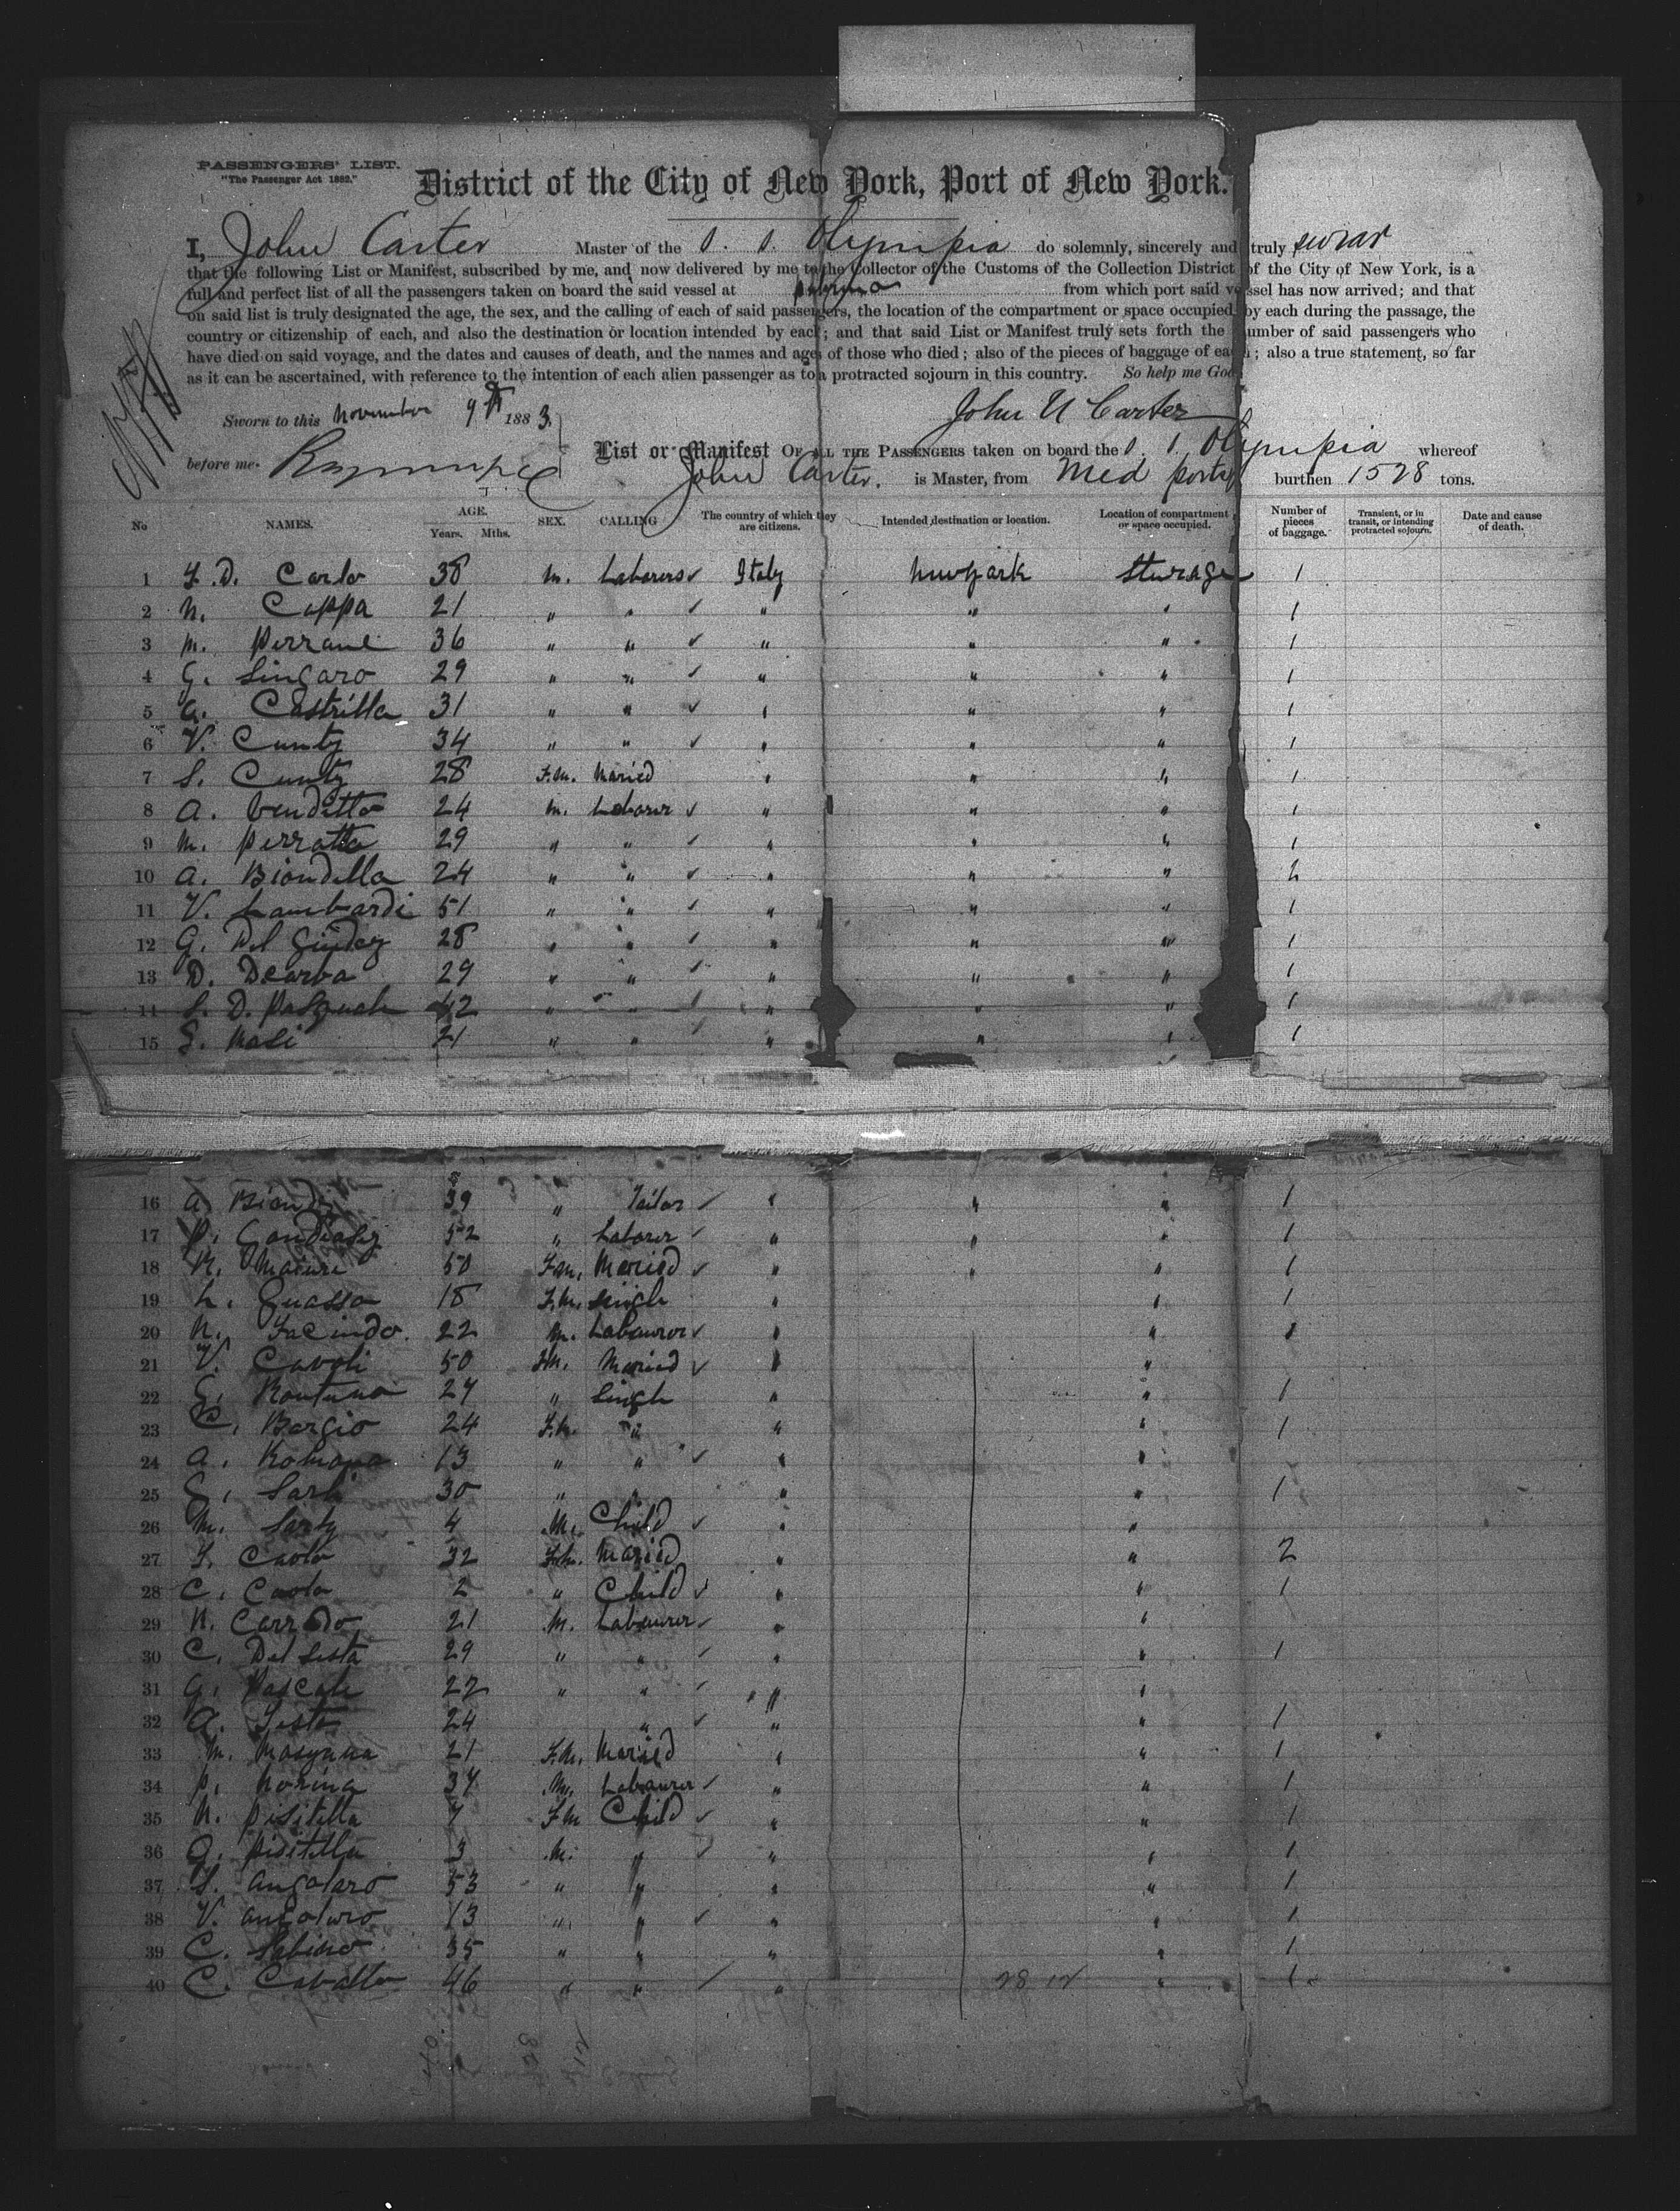 PASSENGERS' LIST.
"The Passenger Act 1882."
District of the City of New York, Port of New York.
I, John Carter Master of the S. S. Olympia do solemnly, sincerely and truly swear
that the following List or Manifest, subscribed by me, and now delivered by me to the Collector of the Customs of the Collection District of the City of New York, is a
full and perfect list of all the passengers taken on board the said vessel at from which port said vessel has now arrived; and that
on said list is truly designated the age, the sex, and the calling of each of said passengers, the location of the compartment or space occupied by each during the passage, the
country or citizenship of each, and also the destination or location intended by each; and that said List or Manifest truly sets forth the number of said passengers who
have died on said voyage, and the dates and causes of death, and the names and ages of those who died; also of the pieces of baggage of each; also a true statement, so far
as it can be ascertained, with reference to the intention of each alien passenger as to a protracted sojourn in this country. So help me God
Sworn to this November 9th 1883. John N Carter
before me
List or Manifest OF ALL THE PASSENGERS taken on board the S. S. Olympia whereof
John Carter. is Master, from Med ports burthen 1528 tons.
No NAMES. AGE. Years. Mths. SEX. CALLING The country of which they are citizens. Intended destination or location. Location of compartment or space occupied. Number of pieces of baggage. Transient, or in transit, or intending protracted sojourn. Date and cause of death.
1 F. D. Carlo 38 m. Laborers ✓ Italy Newyark Sturage 1
2 N. Cappa 21 " " ✓ " " " 1
3 M. Perrane 36 " " ✓ " " " 1
4 G. Singaro 29 " " ✓ " " " 1
5 A. Castrilla 31 " " ✓ " " " 1
6 V. Cunty 34 " " ✓ " " " 1
7 S. Cunty 28 F.M. Maried " " " 1
8 A. Venditto 24 m. Laborer ✓ " " " 1
9 M. Perratta 29 " " ✓ " " " 1
10 A. Biondella 24 " " ✓ " " " 2
11 V. Lambardi 51 " " ✓ " " " 1
12 G. Del 28 " " ✓ " " " 1
13 D. Dearva 29 " " ✓ " " " 1
14 S. D. Pasquale 42 " " ✓ " " " 1
15 G. Masi 21 " " ✓ " " " 1
16 A. Biondi 39 " Tailor ✓ " " " 1
17 P. 52 " Laborer ✓ " " " 1
18 N. Maiure 50 F.M. Maried ✓ " " " 1
19 L. Guasso 18 F.M. Single " " 1
20 N. Facindo 22 M. Labourer ✓ " " 1
21 V. Cavoli 50 F.M. Maried ✓ " "
22 G. 27 " Single " " 1
23 C. Borgio 24 F.M. " " " 1
24 A. Romano 13 " " ✓ " "
25 G. Sarti 30 " " " " 1
26 M. Sarty 4 M. Child ✓ " "
27 F. Caolo 32 F.M. Maried " " 2
28 C. Caolo 2 " Child ✓ " " 1
29 N. Carrado 21 M. Labourer ✓ " "
30 C. Del Sesta 29 " " ✓ " " 1
31 G. Pascale 22 " " ✓ " "
32 A. Testa 24 " ✓ " " 1
33 M. 21 F.M. Maried " " 1
34 P. Norina 37 M. Labourer ✓ " " 1
35 N. Pisitella 7 F.M Child ✓ " " 1
36 A. Pisitella 3 M. " ✓ " " 1
37 S. Angolaro 53 " " " " 1
38 V. Angolaro 13 " " ✓ " " 1
39 C. Sabino 35 " " " " 1
40 C. Cavallo 46 " " ✓ " 28 12 " 1